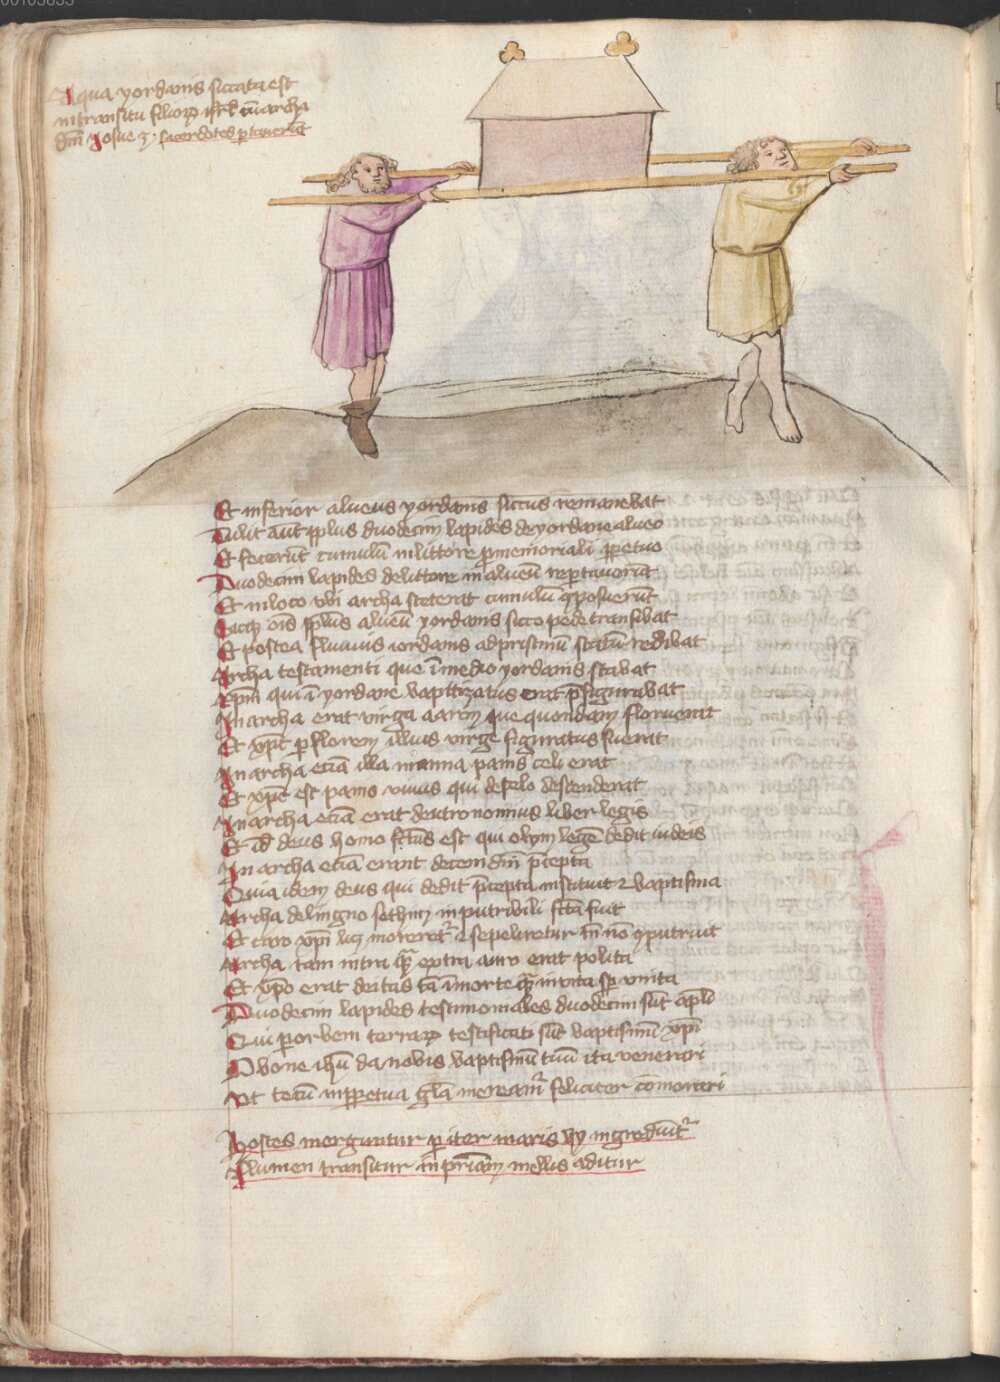 Aqua yordanis siccata est
in transitu filioꝝ isrl cū archa
dm̄ Josue 3. sacerdotes ꝑtauerūt
Et inferior alueus yordanis siccus remanebat
Tulit aut̄ pplus duodecim lapides de yordane alueo
Et fecerūt cumulū in littore ꝑ memoriali ꝑpetuo
Duodecim lapides de littore in alueū reportauerūt
Et in loco vbi archa steterat cumulū ꝯposuerūt
ois pplus alueū yordanis sicco pede transibat
Et postea fluuius iordanis ad pristinū statū redibat
Archa testamenti que ī medio yordanis stabat
xpm̄ qui ī yordane baptizatus erat p̄figurabat
In archa erat virga aaron que quondam floruerat
Et xpc̄ ꝑ florem illius virge figuratus fuerat
In archa eciā illa manna panis celi erat
Et xpc̄ est panis viuus qui de celo descenderat
In archa eciā erat deutronomius liber legis
Et id̄ deus homo fctūs est qui olym legē dedit iudeis
In archa eciā erant decem dm̄ p̄cepta
Quia idem deus qui dedit p̄cepta instituit ⁊ baptisma
Archa de lingno sethim inputribili fctā fuit
Et caro xpi licꝫ moreret̉ ⁊ sepeliretur tn̄ nō ꝯputruit
Archa tam intra qᷓ extra auro erat polita
Et xpo erat deitas tā ī morte qᷓ in vita sp̄ vnita
Duodecim lapides testimoniales duodecim sūt apli
Qui ꝑ orbem terraꝝ testificati sūt baptismū xpi
O bone ihū da nobis baptismū tuū ita venerari
vt tecū in ꝑpetua gl̄a meream̉ feliciter cōmorari
Hostes merguntur ꝑ iter maris hij ingrediūt̉
Flumen transitur in pr̄iam mellis aditur